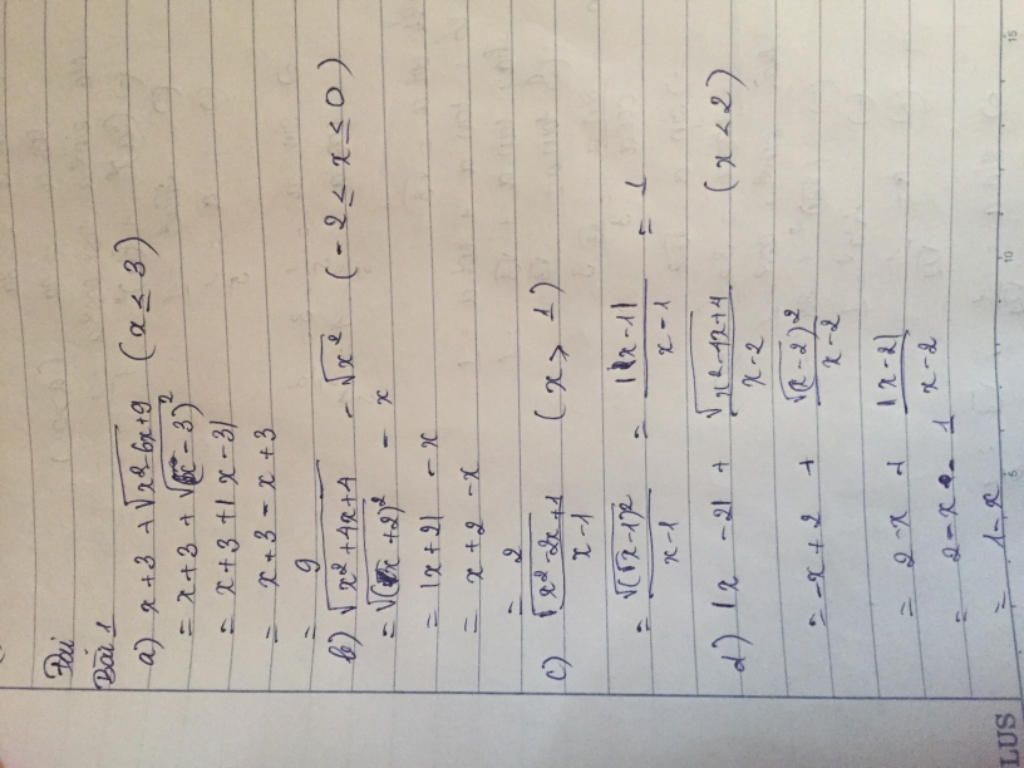 Bài
Bài 1
a) x + 3 + √x² - 6x + 9 (x ≤ 3)
= x + 3 + √(x - 3)²
= x + 3 + |x - 3|
= x + 3 - x + 3
= 9
b) √x² + 4x + 4 - √x² (-2 ≤ x ≤ 0)
= √(x + 2)² - x
= |x + 2| - x
= x + 2 - x
= 2
c) √x² - 2x + 1 / x - 1 (x > 1)
= √(x - 1)² / x - 1 = |x - 1| / x - 1 = 1
d) |x - 2| + √x² - 4x + 4 / x - 2 (x < 2)
= -x + 2 + √(x - 2)² / x - 2
= 2 - x + |x - 2| / x - 2
= 2 - x - 1
= 1 - x
15
10
5
LUS